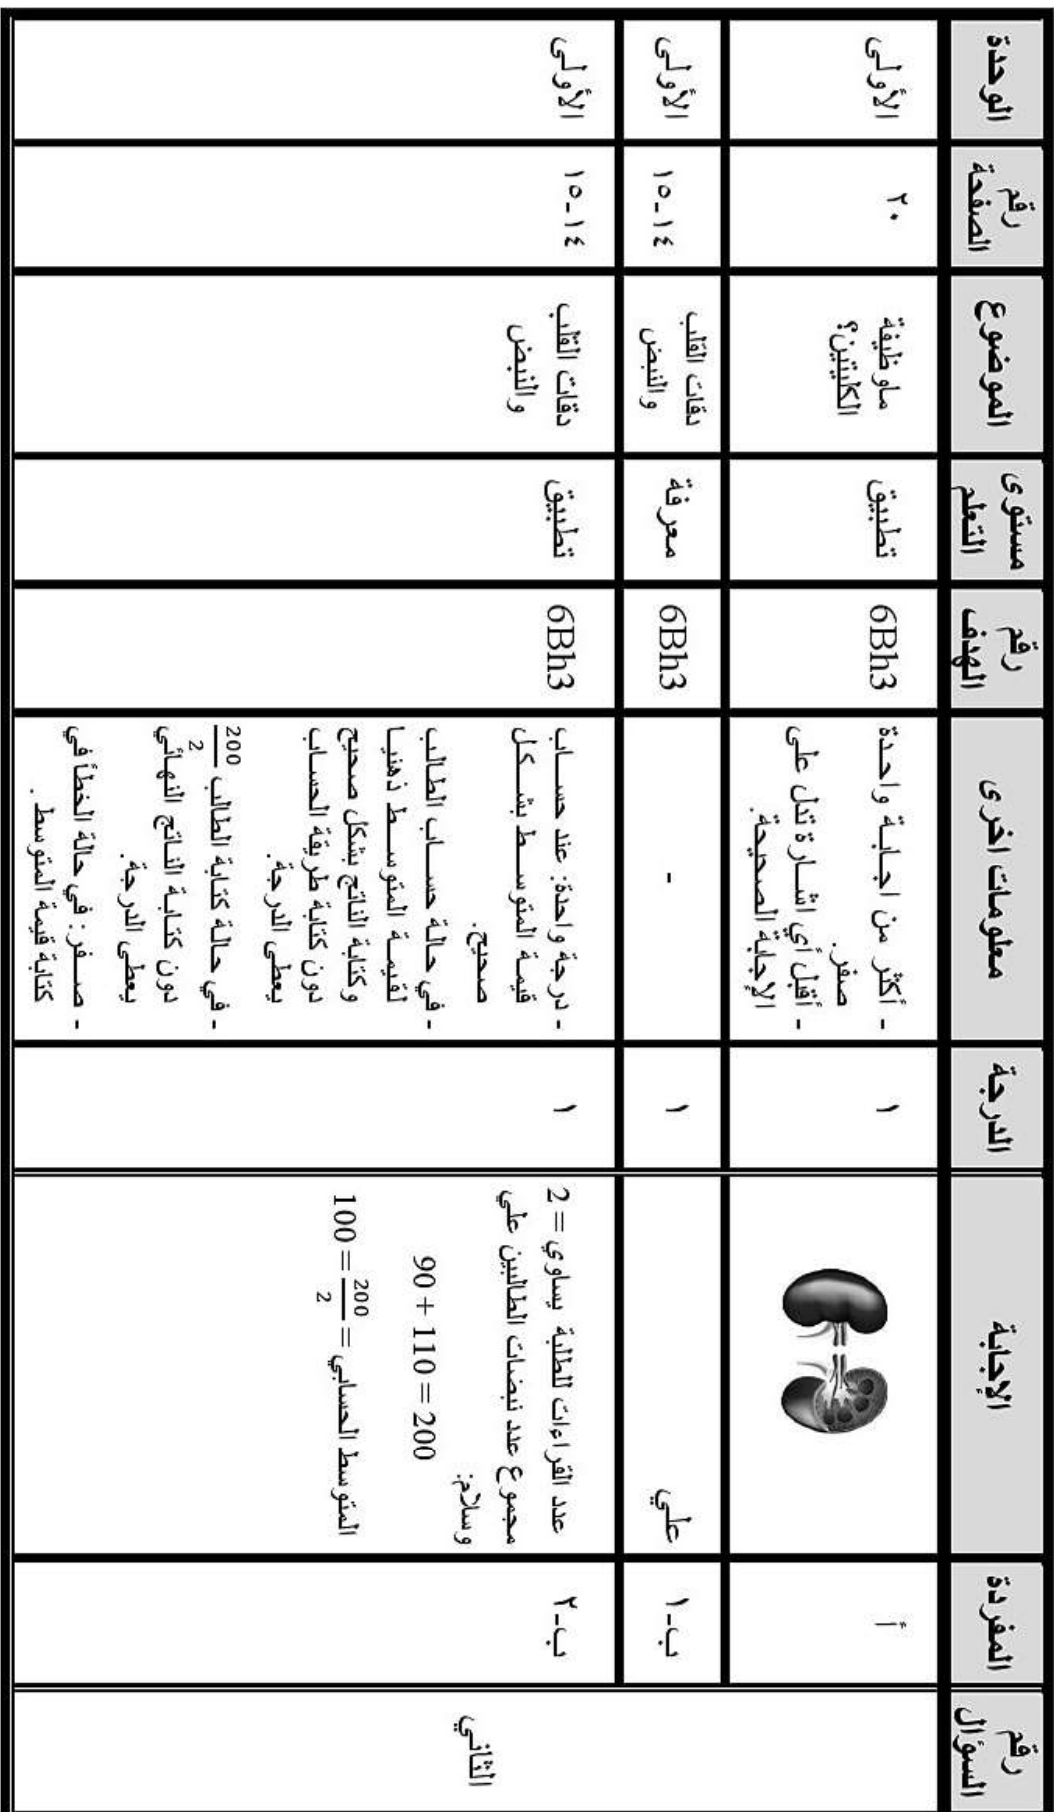 رقم السؤال
المفردة
الإجابة
الدرجة
معلومات اخرى
رقم الهدف
مستوى التعلم
الموضوع
رقم الصفحة
الوحدة
الثاني
أ
١
- أكثر من اجابة واحدة
صفر.
- أقبل أي اشارة تدل على
الإجابة الصحيحة.
6Bh3
تطبيق
ماوظيفة
الكليتين؟
٢٠
الأولى
ب-١
علي
١
-
6Bh3
معرفة
دقات القلب
والنبض
١٤-١٥
الأولى
ب-٢
عدد القراءات للطلبة يساوي = 2
مجموع عدد نبضات الطالبين علي
وسلام:
90 + 110 = 200
المتوسط الحسابي = 200/2 = 100
١
- درجة واحدة: عند حساب
قيمة المتوسط بشكل
صحيح.
- في حالة حساب الطالب
لقيمة المتوسط ذهنيا
وكتابة الناتج بشكل صحيح
دون كتابة طريقة الحساب
يعطى الدرجة.
- في حالة كتابة الطالب 200/2
دون كتابة الناتج النهائي
يعطى الدرجة.
- صفر: في حالة الخطأ في
كتابة قيمة المتوسط.
6Bh3
تطبيق
دقات القلب
والنبض
١٤-١٥
الأولى